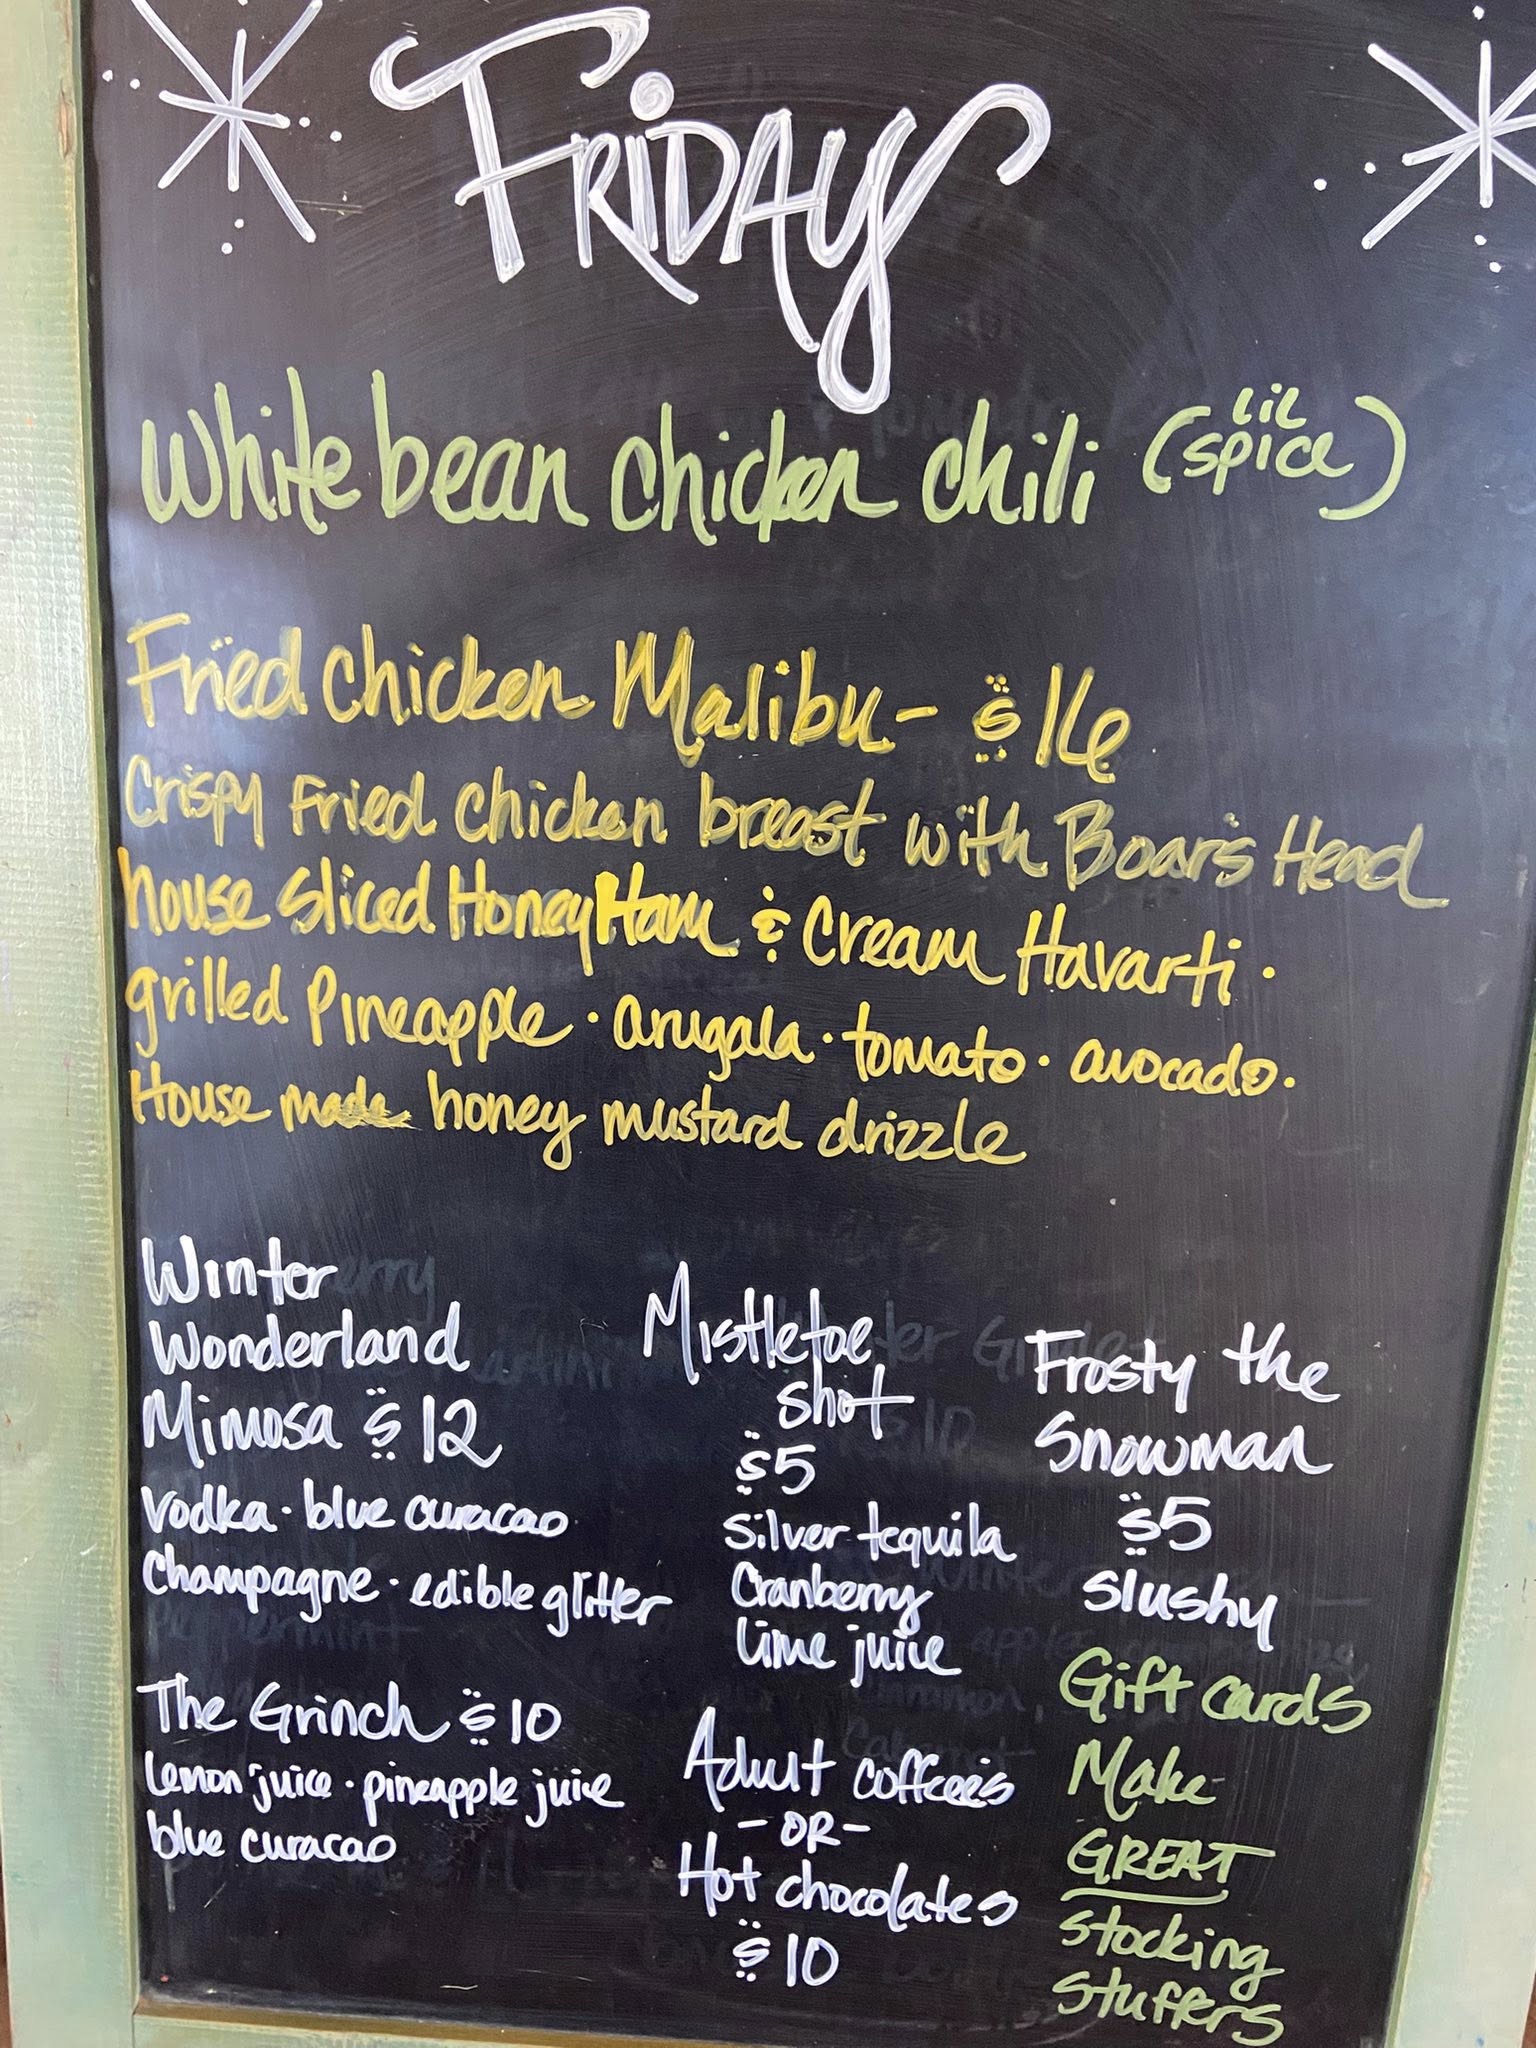 FRiDAY
White bean chicken chili (lil spice)
Fried chicken Malibu - $16
Crispy Fried chicken breast with Boars Head
house sliced Honey Ham & Cream Havarti ·
grilled Pineapple · arugala · tomato · avocado ·
House made honey mustard drizzle
Winter
Wonderland
Mimosa $12
vodka · blue curacao
champagne · edible glitter
The Grinch $10
lemon juice · pineapple juice
blue curacao
Mistletoe
shot
$5
silver tequila
Cranberry
lime juice
Adult coffee's
- OR -
Hot chocolates
$10
Frosty the
Snowman
$5
slushy
Gift cards
Make
GREAT
stocking
stuffers